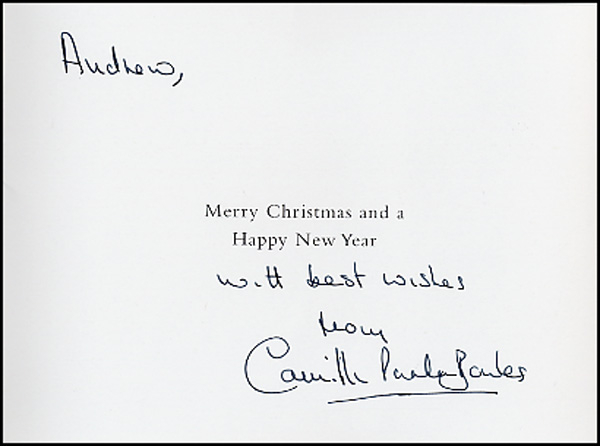 Andrew,
Merry Christmas and a
Happy New Year
with best wishes
from
Camilla Parker Bowles